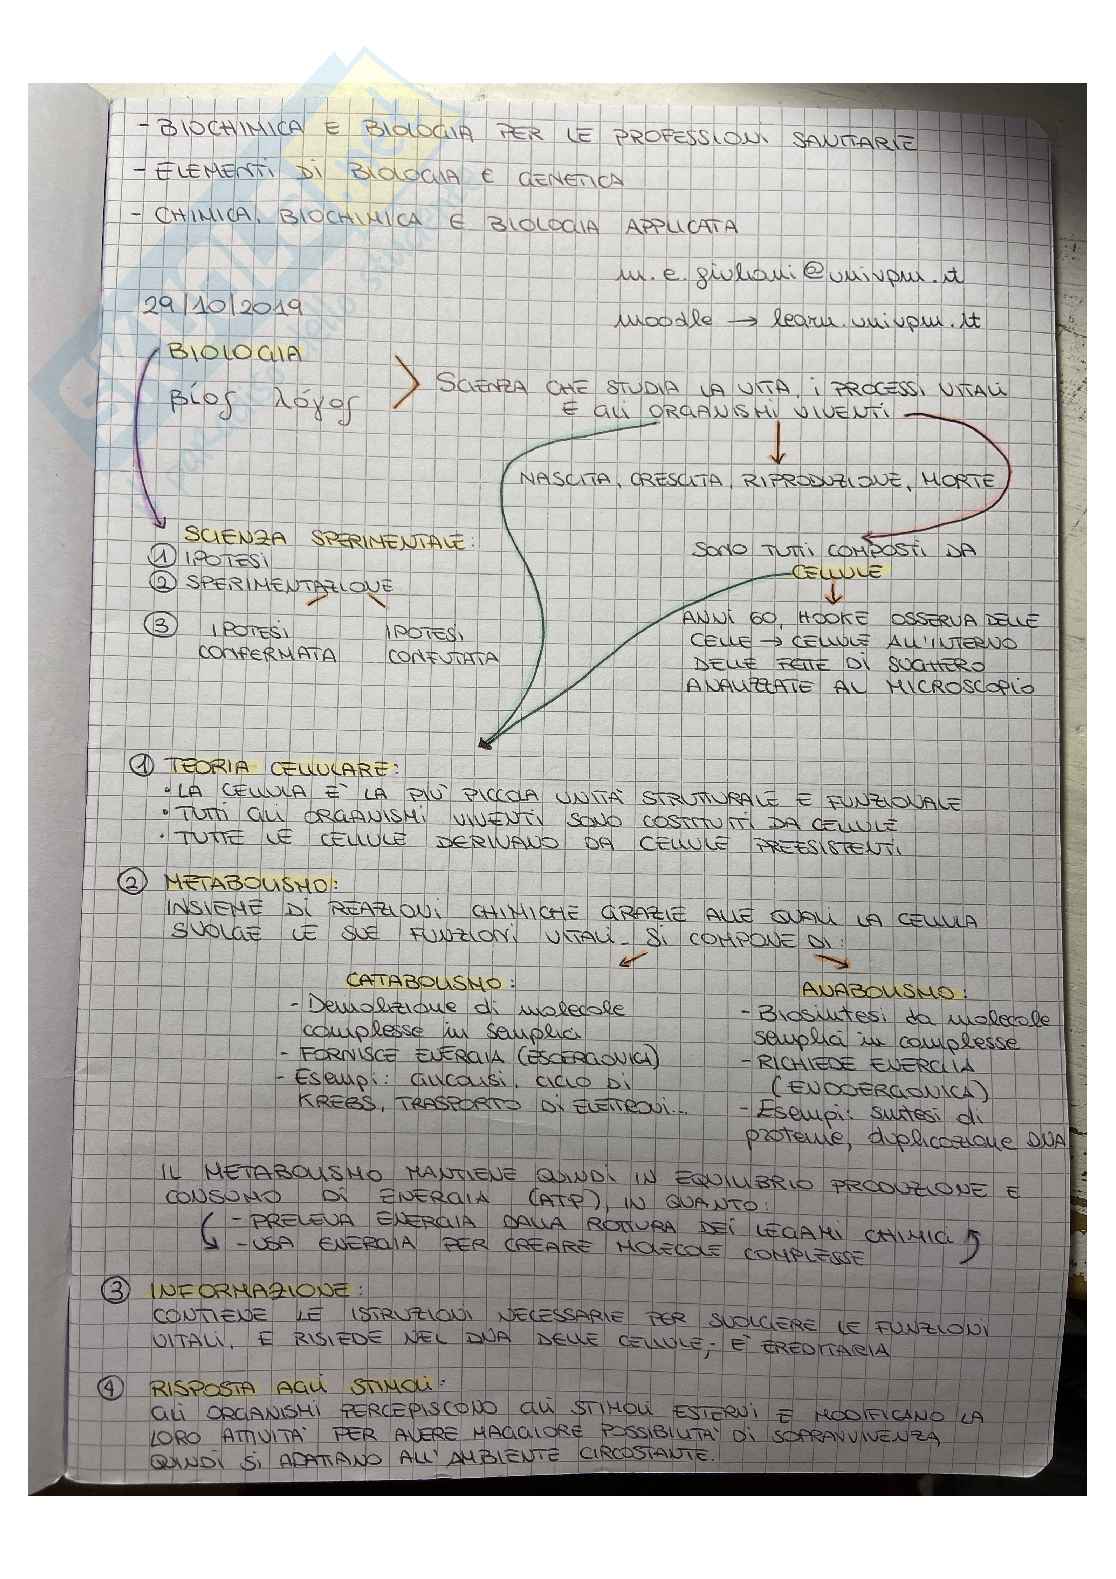 - BIOCHIMICA E BIOLOGIA PER LE PROFESSIONI SANITARIE
- ELEMENTI DI BIOLOGIA E GENETICA
- CHIMICA, BIOCHIMICA E BIOLOGIA APPLICATA
m.e.giuliani@univpm.it
29/10/2019
moodle → learn.univpm.it
BIOLOGIA
βίος λόγος
SCIENZA CHE STUDIA LA VITA, I PROCESSI VITALI
E GLI ORGANISMI VIVENTI
NASCITA, CRESCITA, RIPRODUZIONE, MORTE
SCIENZA SPERIMENTALE:
① IPOTESI
② SPERIMENTAZIONE
③ IPOTESI CONFERMATA
IPOTESI CONFUTATA
SONO TUTTI COMPOSTI DA
CELLULE
ANNI 60, HOOKE OSSERVA DELLE
CELLE → CELLULE ALL'INTERNO
DELLE FETTE DI SUGHERO
ANALIZZATE AL MICROSCOPIO
① TEORIA CELLULARE:
• LA CELLULA E' LA PIU' PICCOLA UNITA' STRUTTURALE E FUNZIONALE
• TUTTI GLI ORGANISMI VIVENTI SONO COSTITUITI DA CELLULE
• TUTTE LE CELLULE DERIVANO DA CELLULE PREESISTENTI
② METABOLISMO:
INSIEME DI REAZIONI CHIMICHE GRAZIE ALLE QUALI LA CELLULA
SVOLGE LE SUE FUNZIONI VITALI. SI COMPONE DI:
CATABOLISMO:
- Demolizione di molecole
complesse in semplici
- FORNISCE ENERGIA (ESOERGONICA)
- Esempi: GLICOLISI, CICLO DI
KREBS, TRASPORTO DI ELETTRONI...
ANABOLISMO:
- Biosintesi da molecole
semplici in complesse
- RICHIEDE ENERGIA
(ENDOERGONICA)
- Esempi: sintesi di
proteine, duplicazione DNA
IL METABOLISMO MANTIENE QUINDI IN EQUILIBRIO PRODUZIONE E
CONSUMO DI ENERGIA (ATP), IN QUANTO:
- PRELEVA ENERGIA DALLA ROTTURA DEI LEGAMI CHIMICI
- USA ENERGIA PER CREARE MOLECOLE COMPLESSE
③ INFORMAZIONE:
CONTIENE LE ISTRUZIONI NECESSARIE PER SVOLGERE LE FUNZIONI
VITALI, E RISIEDE NEL DNA DELLE CELLULE; E' EREDITARIA
④ RISPOSTA AGLI STIMOLI:
GLI ORGANISMI PERCEPISCONO GLI STIMOLI ESTERNI E MODIFICANO LA
LORO ATTIVITA' PER AVERE MAGGIORE POSSIBILITA' DI SOPRAVVIVENZA,
QUINDI SI ADATTANO ALL'AMBIENTE CIRCOSTANTE.